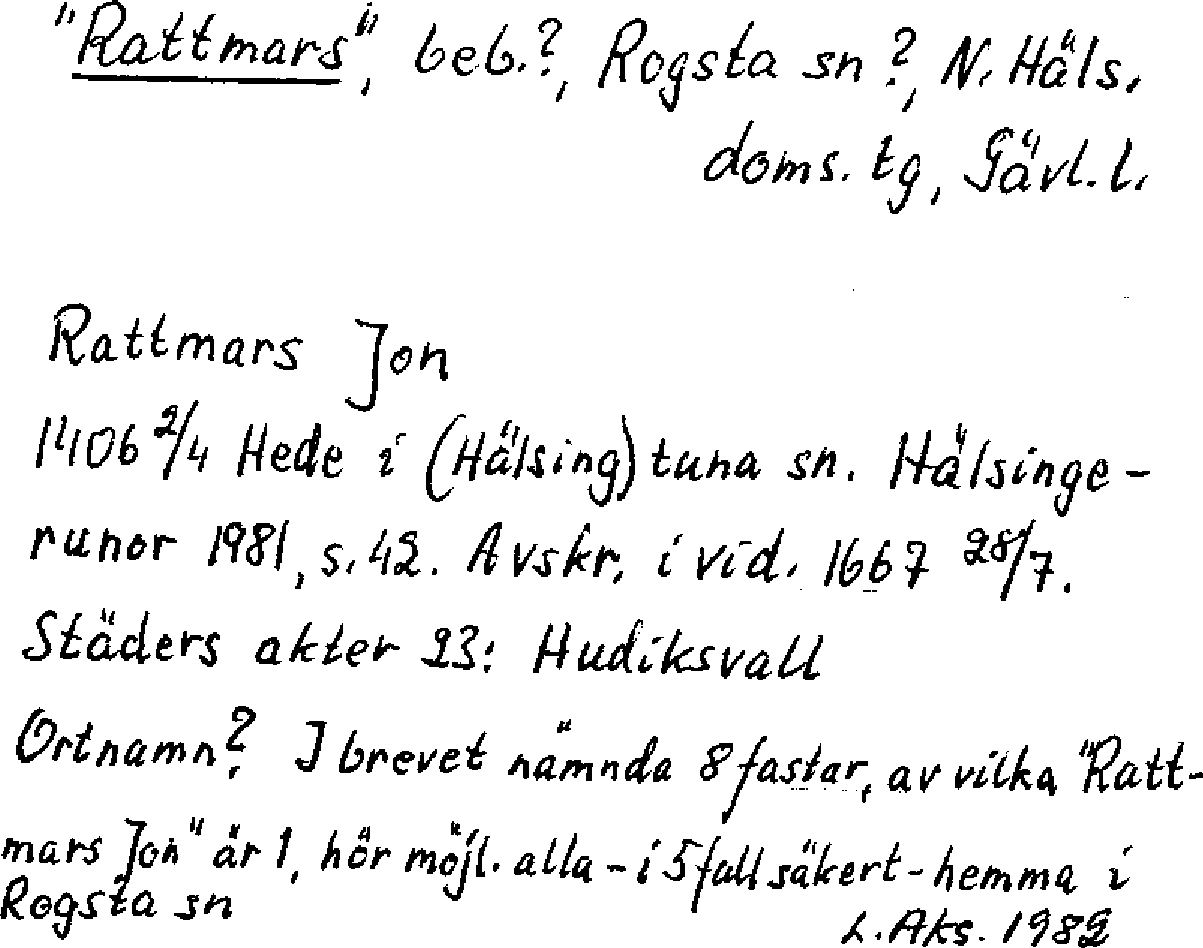 "Rattmars", beb.?, Rogsta sn?, N. Häls.
doms. tg, Gävl. l.
Rattmars Jon
1406 2/4 Hede i (Hälsing)tuna sn. Hälsinge-
runor 1981, s. 42. Avskr. i vid. 1667 28/7.
Städers akter 23: Hudiksvall
Ortnamn? I brevet nämnda 8 fastar, av vilka "Ratt-
mars Jon" är 1, hör möjl. alla - i 5 fall säkert - hemma i
Rogsta sn
L. Aks. 1982